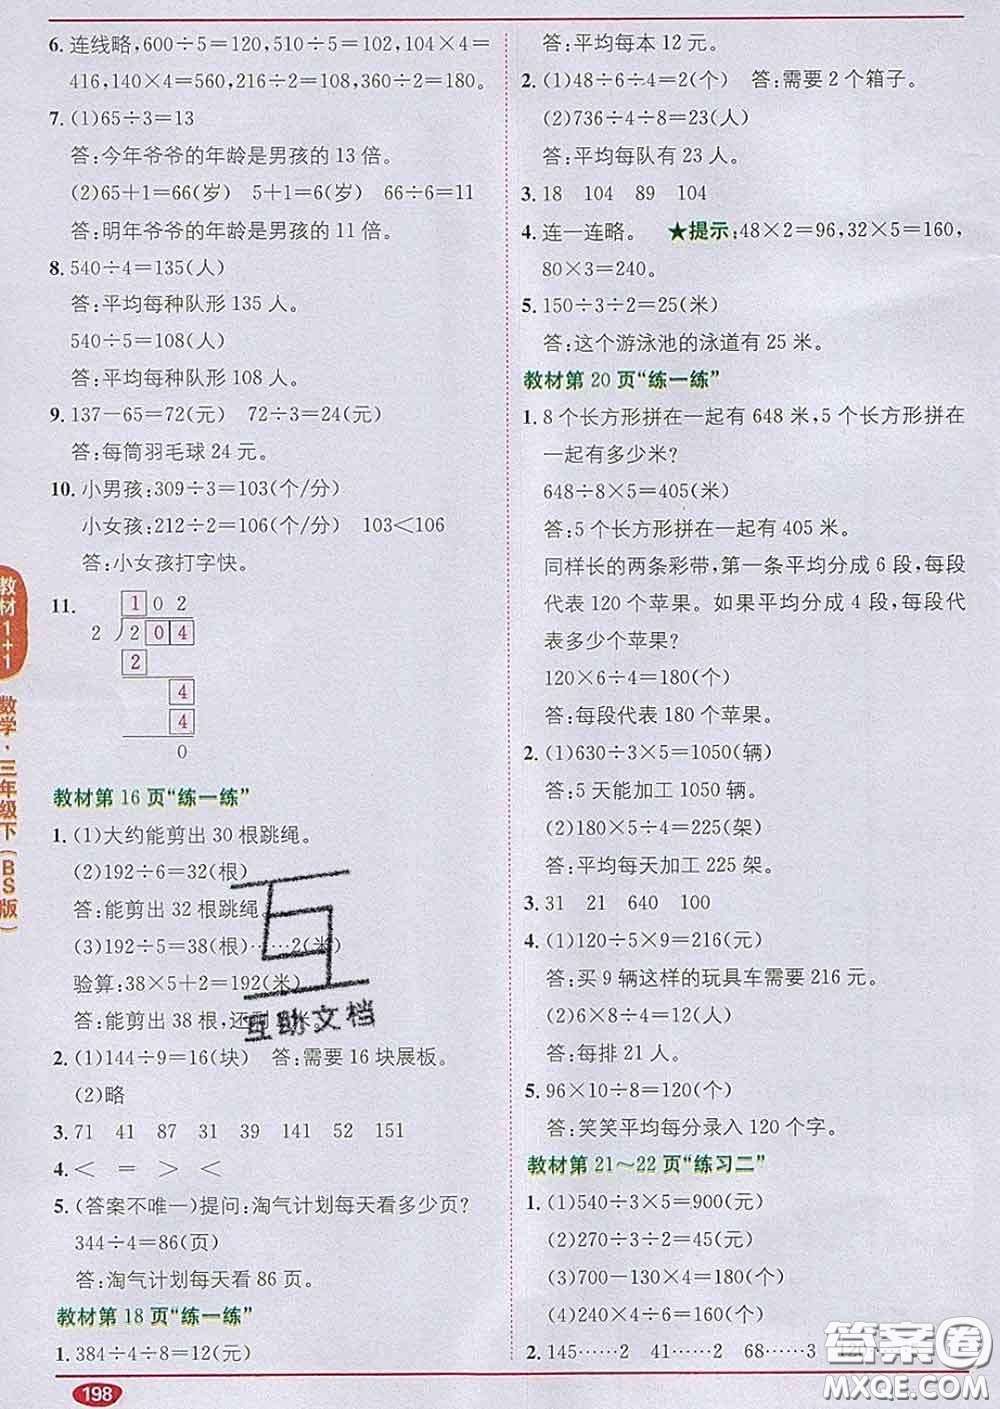 6. 连线略,600÷5=120,510÷5=102,104×4=
416,140×4=560,216÷2=108,360÷2=180。
7. (1)65÷3=13
答:今年爷爷的年龄是男孩的 13 倍。
(2)65+1=66(岁) 5+1=6(岁) 66÷6=11
答:明年爷爷的年龄是男孩的 11 倍。
8. 540÷4=135(人)
答:平均每种队形 135 人。
540÷5=108(人)
答:平均每种队形 108 人。
9. 137-65=72(元) 72÷3=24(元)
答:每筒羽毛球 24 元。
10. 小男孩:309÷3=103(个/分)
小女孩:212÷2=106(个/分) 103<106
答:小女孩打字快。
11.
1 0 2
2 2 0 4
2
4
4
0
教材第 16 页“练一练”
1. (1)大约能剪出 30 根跳绳。
(2)192÷6=32(根)
答:能剪出 32 根跳绳。
(3)192÷5=38(根)……2(米)
验算:38×5+2=192(米)
答:能剪出 38 根,还剩 米。
2. (1)144÷9=16(块) 答:需要 16 块展板。
(2)略
3. 71 41 87 31 39 141 52 151
4. < = > <
5. (答案不唯一)提问:淘气计划每天看多少页?
344÷4=86(页)
答:淘气计划每天看 86 页。
教材第 18 页“练一练”
1. 384÷4÷8=12(元)
答:平均每本 12 元。
2. (1)48÷6÷4=2(个) 答:需要 2 个箱子。
(2)736÷4÷8=23(人)
答:平均每队有 23 人。
3. 18 104 89 104
4. 连一连略。 ★提示:48×2=96,32×5=160,
80×3=240。
5. 150÷3÷2=25(米)
答:这个游泳池的泳道有 25 米。
教材第 20 页“练一练”
1. 8 个长方形拼在一起有 648 米,5 个长方形拼在
一起有多少米?
648÷8×5=405(米)
答:5 个长方形拼在一起有 405 米。
同样长的两条彩带,第一条平均分成 6 段,每段
代表 120 个苹果。如果平均分成 4 段,每段代
表多少个苹果?
120×6÷4=180(个)
答:每段代表 180 个苹果。
2. (1)630÷3×5=1050(辆)
答:5 天能加工 1050 辆。
(2)180×5÷4=225(架)
答:平均每天加工 225 架。
3. 31 21 640 100
4. (1)120÷5×9=216(元)
答:买 9 辆这样的玩具车需要 216 元。
(2)6×8÷4=12(人)
答:每排 21 人。
5. 96×10÷8=120(个)
答:笑笑平均每分录入 120 个字。
教材第 21～22 页“练习二”
1. (1)540÷3×5=900(元)
(2)270÷3÷2=45(元)
(3)700-130×4=180(个)
(4)240×4÷6=160(个)
2. 145……2 41……2 68……3 120
198
教材1+1 数学·三年级下(BS版)
互助文档
答案圈
MXQE.COM